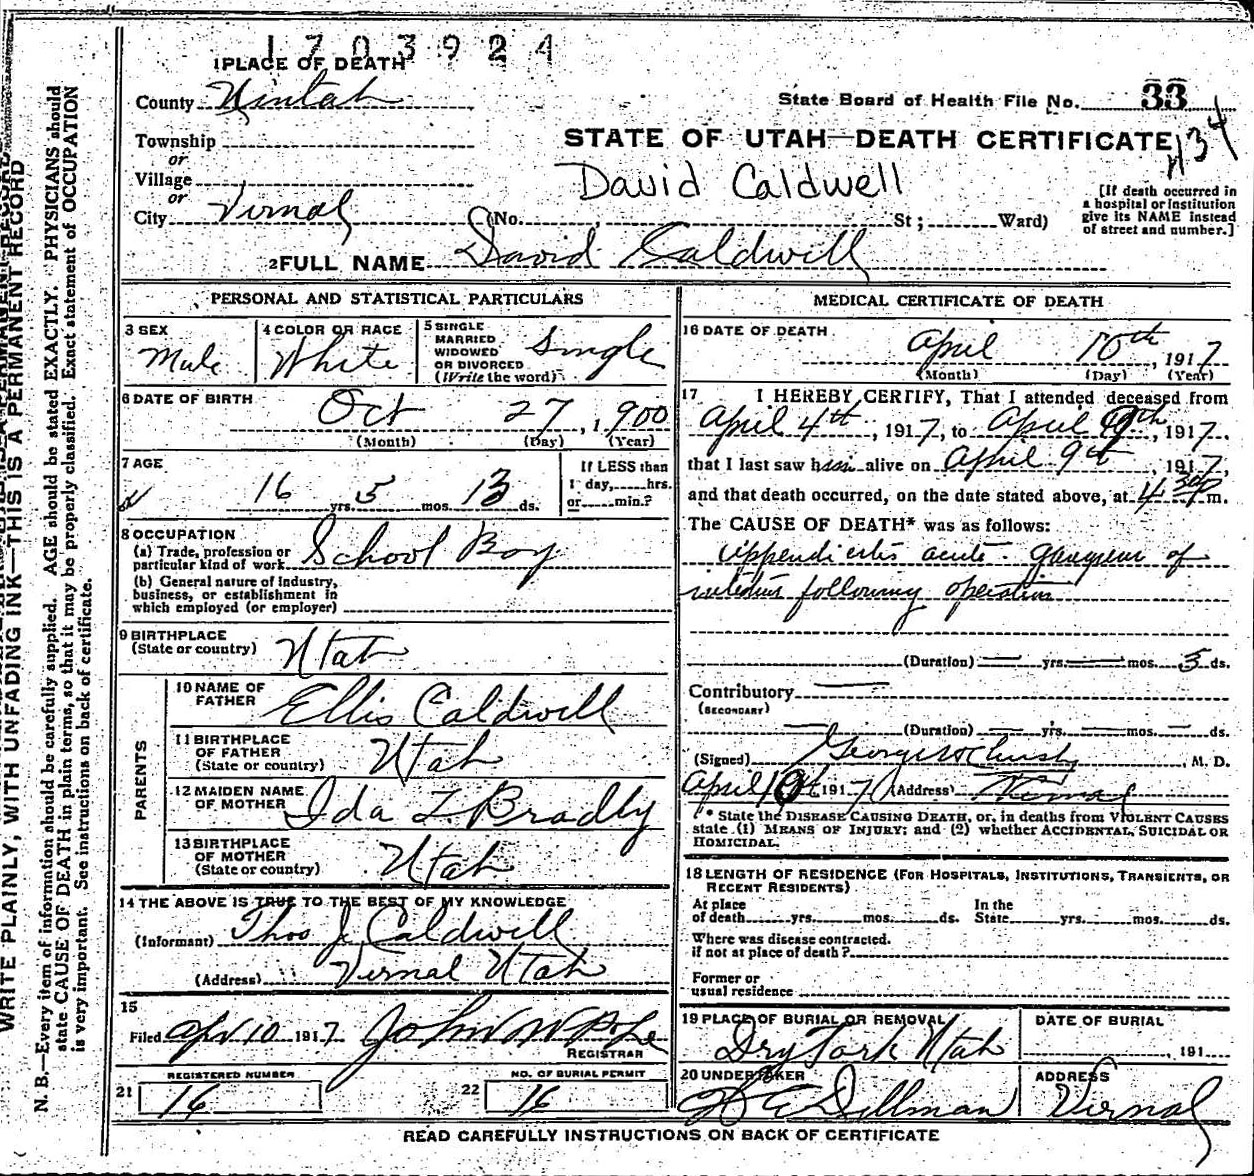 1703924
1 PLACE OF DEATH
County Uintah
State Board of Health File No. 33
Township
or
STATE OF UTAH—DEATH CERTIFICATE
134
Village
or
David Caldwell
City Vernal (No. St; Ward)
[If death occurred in
a hospital or institution
give its NAME instead
of street and number.]
2 FULL NAME David Caldwell
PERSONAL AND STATISTICAL PARTICULARS
3 SEX
Male
4 COLOR OR RACE
White
5 SINGLE
MARRIED
WIDOWED
OR DIVORCED
(Write the word)
Single
6 DATE OF BIRTH
Oct 27, 1900
(Month) (Day) (Year)
7 AGE
16 yrs. 5 mos. 13 ds.
If LESS than
1 day, hrs.
or min.?
8 OCCUPATION
(a) Trade, profession or
particular kind of work School Boy
(b) General nature of industry,
business, or establishment in
which employed (or employer)
9 BIRTHPLACE
(State or country) Utah
PARENTS
10 NAME OF
FATHER Ellis Caldwell
11 BIRTHPLACE
OF FATHER
(State or country) Utah
12 MAIDEN NAME
OF MOTHER Ida Z Bradly
13 BIRTHPLACE
OF MOTHER
(State or country) Utah
14 THE ABOVE IS TRUE TO THE BEST OF MY KNOWLEDGE
(Informant) Thos J Caldwell
(Address) Vernal Utah
15
Filed Apr 10 1917 John N Pope
REGISTRAR
REGISTERED NUMBER
21 16
NO. OF BURIAL PERMIT
22 16
MEDICAL CERTIFICATE OF DEATH
16 DATE OF DEATH
April 10th, 1917
(Month) (Day) (Year)
17 I HEREBY CERTIFY, That I attended deceased from
April 4th, 1917, to April 9th, 1917,
that I last saw him alive on April 9th, 1917,
and that death occurred, on the date stated above, at 4 30 P m.
The CAUSE OF DEATH* was as follows:
Appendicitis acute. gangrene of
intestins following operation
(Duration) yrs. mos. 5 ds.
Contributory
(SECONDARY)
(Duration) yrs. mos. ds.
(Signed) George, M. D.
April 10th 1917 (Address) Vernal
* State the DISEASE CAUSING DEATH, or, in deaths from VIOLENT CAUSES
state (1) MEANS OF INJURY; and (2) whether ACCIDENTAL, SUICIDAL OR
HOMICIDAL.
18 LENGTH OF RESIDENCE (FOR HOSPITALS, INSTITUTIONS, TRANSIENTS, OR
RECENT RESIDENTS)
At place
of death yrs. mos. ds.
In the
State yrs. mos. ds.
Where was disease contracted.
if not at place of death?
Former or
usual residence
19 PLACE OF BURIAL OR REMOVAL
Dry Fork Utah
DATE OF BURIAL
, 191
20 UNDERTAKER
Dillman
ADDRESS
Vernal
READ CAREFULLY INSTRUCTIONS ON BACK OF CERTIFICATE
WRITE PLAINLY, WITH UNFADING INK—THIS IS A PERMANENT RECORD
N. B.—Every item of information should be carefully supplied. AGE should be stated EXACTLY. PHYSICIANS should
state CAUSE OF DEATH in plain terms, so that it may be properly classified. Exact statement of OCCUPATION
is very important. See instructions on back of certificate.